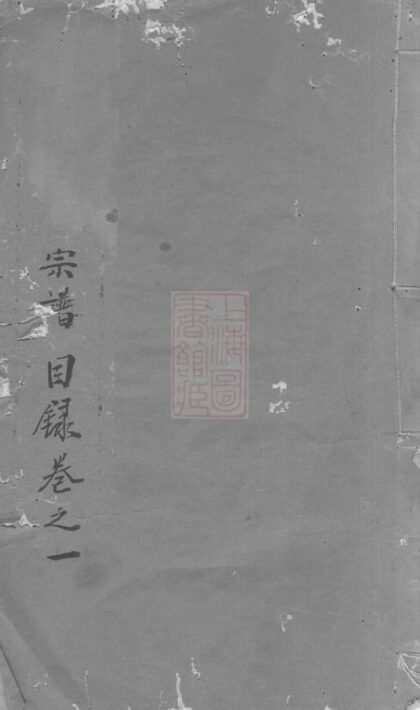 上海圖
書館藏
宗譜 目録卷之一